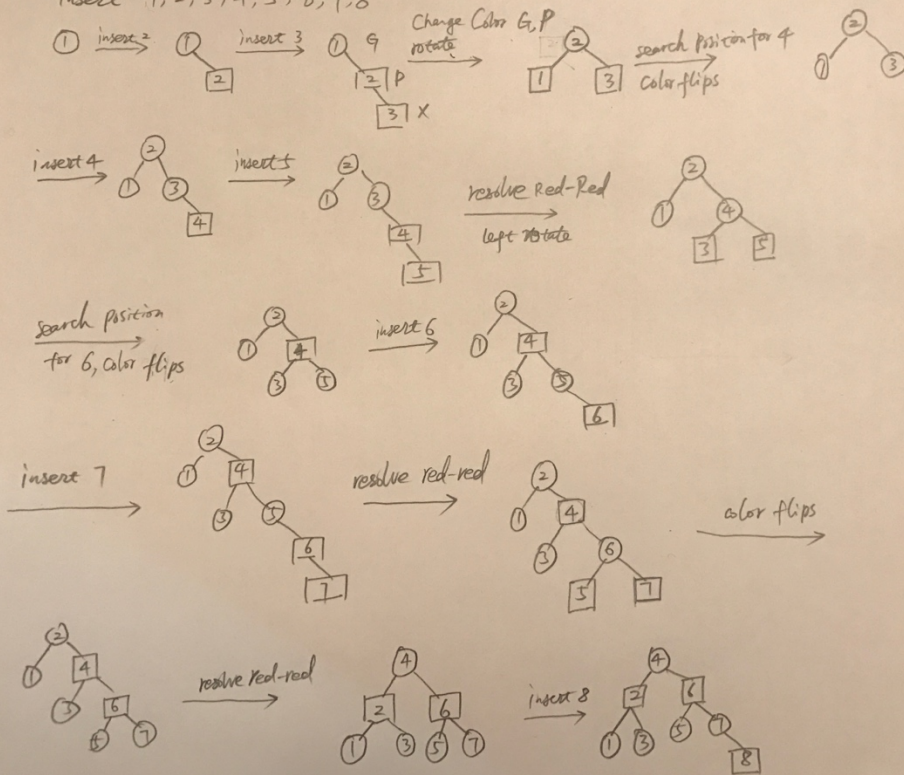 insert 1, 2, 3, 4, 5, 6, 7, 8
1 insert 2 1 2 insert 3 1 G 2 P 3 X Change Color G, P rotate 2 1 3 search position for 4 Color flips 2 1 3
insert 4 2 1 3 4 insert 5 2 1 3 4 5 resolve Red-Red left rotate 2 1 4 3 5
search position for 6, color flips 2 1 4 3 5 insert 6 2 1 4 3 5 6
insert 7 2 1 4 3 5 6 7 resolve red-red 2 1 4 3 6 5 7 color flips
2 1 4 3 6 5 7 resolve red-red 4 2 6 1 3 5 7 insert 8 4 2 6 1 3 5 7 8